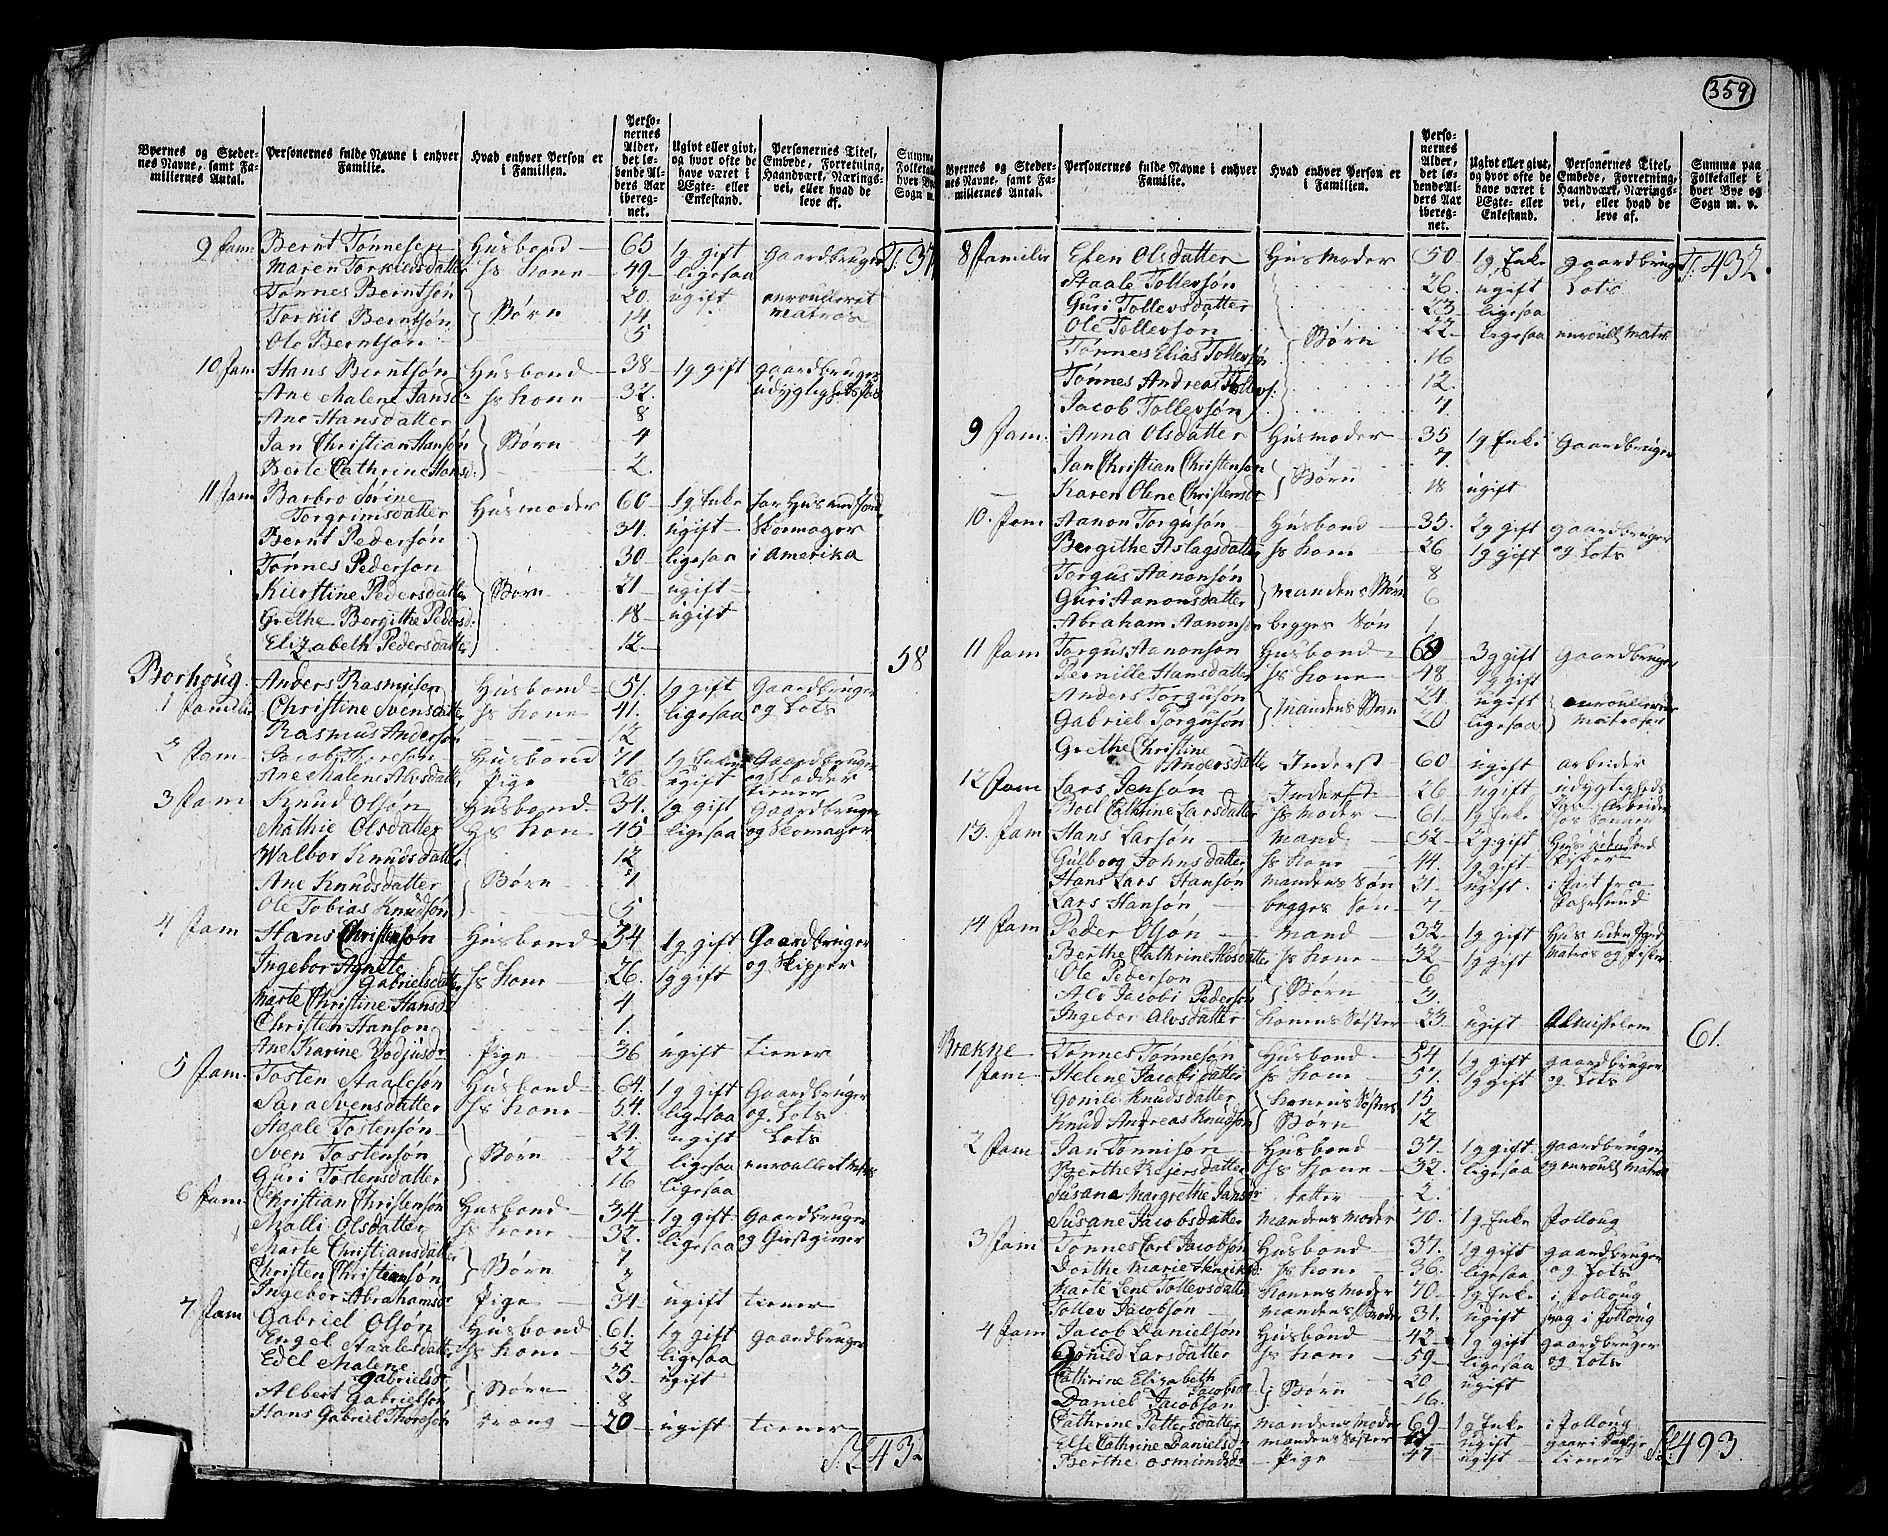 359
Byernes og Steder-
nes Navne, samt Fa-
miliernes Antal.
Personernes fulde Navne i enhver
Familie.
Hvad enhver Person er
i Familien.
Perso-
nernes
Alder,
det lø-
bende Al-
ders Aar
iberegnet.
Ugivt eller givt,
og hvor ofte de
have været i
Ægte- eller
Enkestand.
Personernes Titel,
Embede, Forretning,
Haandværk, Nærings-
vei, eller hvad de
leve af.
9 Fam Bernt Tønnesen Husbond 65 1g gift Gaardbruger
Maren Torkildsdatter Hs Kone 49 ligesaa
Tønnes Berntsøn 20. ugift enroulleret
Torkil Berntsøn Børn 14 matros
Ole Berntsøn 5
10 Fam Hans Berntsøn Husbond 38 1g gift gaardbruger
Ane Malene Jansdr Hs Kone 32.
Ane Hansdatter 8
Jan Christian Hansøn Børn 4
Berte Cathrine Hansd. 2.
11 Fam Barbro Sørine
Torgrimsdatter Husmoder 60 1g Enke
Bernt Pedersøn 34. ugift Skomager
Tønnes Pedersøn 30 ligesaa i Amerika
Kierstine Pedersdatter Børn 21 ugift
Grethe Bergithe Pedersd. 18 ugift
Elizabeth Pedersdatter 12
58
Borhoug Anders Rasmusen Husbond 51. 1g gift Gaardbruger
1 Familie Christine Svensdatter Hs Kone 41. ligesaa og Lots
Rasmus Andersøn 12
2 Fam Jacob Thoresøn Husbond 71 1g Enkem Gaardbruger
Ane Malene Alvsdatter Pige 26. ugift tiener
3 Fam Knud Olsøn Husbond 31. 1g gift Gaardbruger
Mathie Olsdatter Hs Kone 45 ligesaa og Skomager
Walbor Knudsdatter 12
Ane Knudsdatter Børn 7
Ole Tobias Knudsøn 5
4 Fam Hans Christensøn Husbond 34 1g gift Gaardbruger
Ingebor Agnete
Gabrielsdatter Hs Kone 26. 1g gift og Skipper
Marte Christine Hansdr 4
Christen Hansøn 1.
Ane Karine Pige 36 ugift tiener
5 Fam Tosten Staalesøn Husbond 64. 1g gift Gaardbruger
Sara Svensdatter Hs Kone 54. ligesaa og Lots
Staale Tostensøn 24. ugift Lots
Sven Tostensøn Børn 22 ligesaa enroullert Matros
Guri Tostensdatter 16 ligesaa
6 Fam. Christian Christensøn Husbond 34 1g gift Gaardbruger
Malli Olsdatter Hs Kone 32. ligesaa og Giestgiver
Marte Christiansdatter 7
Christen Christiansøn Børn 2
Ingebor Abrahamsdr Pige 34 ugift tiener
7 Fam Gabriel Olsøn Husbond 61. 1g gift gaardbruger
Engel Staalesdatter Hs Kone 52 ligesaa
Edel Malene
Gabrielsdr 25. ugift
Albert Gabrielsøn Børn 8
Hans Gabriel Thoresøn 20 ugift tiener
Byernes og Steder-
nes Navne, samt Fa-
miliernes Antal.
Personernes fulde Navne i enhver
Familie.
Hvad enhver Person er
i Familien.
Perso-
nernes
Alder,
det lø-
bende Al-
ders Aar
iberegnet.
Ugivt eller givt,
og hvor ofte de
have været i
Ægte- eller
Enkestand.
Personernes Titel,
Embede, Forretning,
Haandværk, Nærings-
vei, eller hvad de
leve af.
Summa paa
Folketallet i
hver Bye og
Sogn m. v.
8 Familie Elen Olsdatter Husmoder 50 1g Enke gaardbruger T. 432.
Staale Tollevsøn 26. ugift Lots
Guri Tollevsdatter 23 ligesaa
Ole Tollevsøn Børn 22 ligesaa enroull Matros
Tønnes Elias Tollevsøn 16
Tønnes Andreas Tollevs. 12.
Jacob Tollevsøn 7
9 Fam. Anna Olsdatter Husmoder 35 1g Enke Gaardbruger
Jan Christian Christensøn Børn 7.
Karen Olene Christensdr 18 ugift
10. Fam Aanon Torgusøn Husbond 35. 2g gift gaardbruger
Bergithe Aslagsdatter Hs Kone 26 1g gift og Lots
Torgus Aanonsøn 8
Guri Aanonsdatter mandens Børn 6
Abraham Aanonsøn begges Søn 1
11 Fam Torgus Aanonsøn Husbond 68 3g gift Gaardbruger
Pernille Hansdatter Hs Kone 48 gift
Anders Torgusøn 24. ugift enroullerede
Gabriel Torgusøn mandens Børn 20 ligesaa matroser
Grethe Christine
Andersdatter Inderst 60 ugift arbeider
12 Fam Lars Jensøn Inderst 26 ugift udygtigheds
Boel Cathrine Larsdatter Hs moder 61. 1g Enke
13. Fam Hans Larsøn mand 52 2g gift Huus uden Jord
Gulborg Johnsdatter Hs Kone 44. 1g gift fisker
Hans Lars Hansøn mandens Søn 21 ugift i fart fra
Lars Hansøn begges Søn 7 Farsund
14 Fam Peder Olsøn mand 32 1g gift Hus uden Jord
Berthe Cathrine Alvsdatter Hs Kone 32 1g gift Matros og fisker
Ole Pedersøn 6
Alv Jacobi Pedersøn Børn 3.
Ingebor Alvsdatter Konens Søster 23 ugift Almisselem
61.
Brækne Tønnes Tønnesøn Husbond 54 1g gift gaardbruger
1 Fam Helene Jacobsdatter Hs Kone 57. 1g gift og Lots
Gonild Knudsdatter Konens Søsters 15
Knud Andreas Knudsøn Børn 12
2 Fam Jan Tønnisøn Husbond 37. 1g gift gaardbruger
Berthe Reiersdatter Hs Kone 32. ligesaa og enroull matros
Susana Margrethe Jansdr datter 2.
Susane Jacobsdatter mandens moder 70. 1g Enke Folloug
3 Fam Tønnes Carl Jacobsøn Husbond 37. 1g gift gaardbruger
Dorthe Marie Henriksd: Hs Kone 36. ligesaa og Lots
Marte Lene Tollevsdatter Konens moder 70 1g Enke i folloug
Tollev Jacobsøn mandens Broder 31. ugift svag i folloug
4 Fam Jacob Danielsøn Husbond 42 1g gift gaardbruger
Gonild Larsdatter Hs Kone 59 ligesaa og Lots
Cathrine Elizabeth
Jacobsdr Børn 20 ugift
Daniel Jacobsøn 16.
Cathrine Pettersdatter mandens moder 69 1g Enke i folloug
Else Cathrine Danielsdr mandens Søster ugift
Berthe Osmundsdr Pige 47 ugift tiener
493